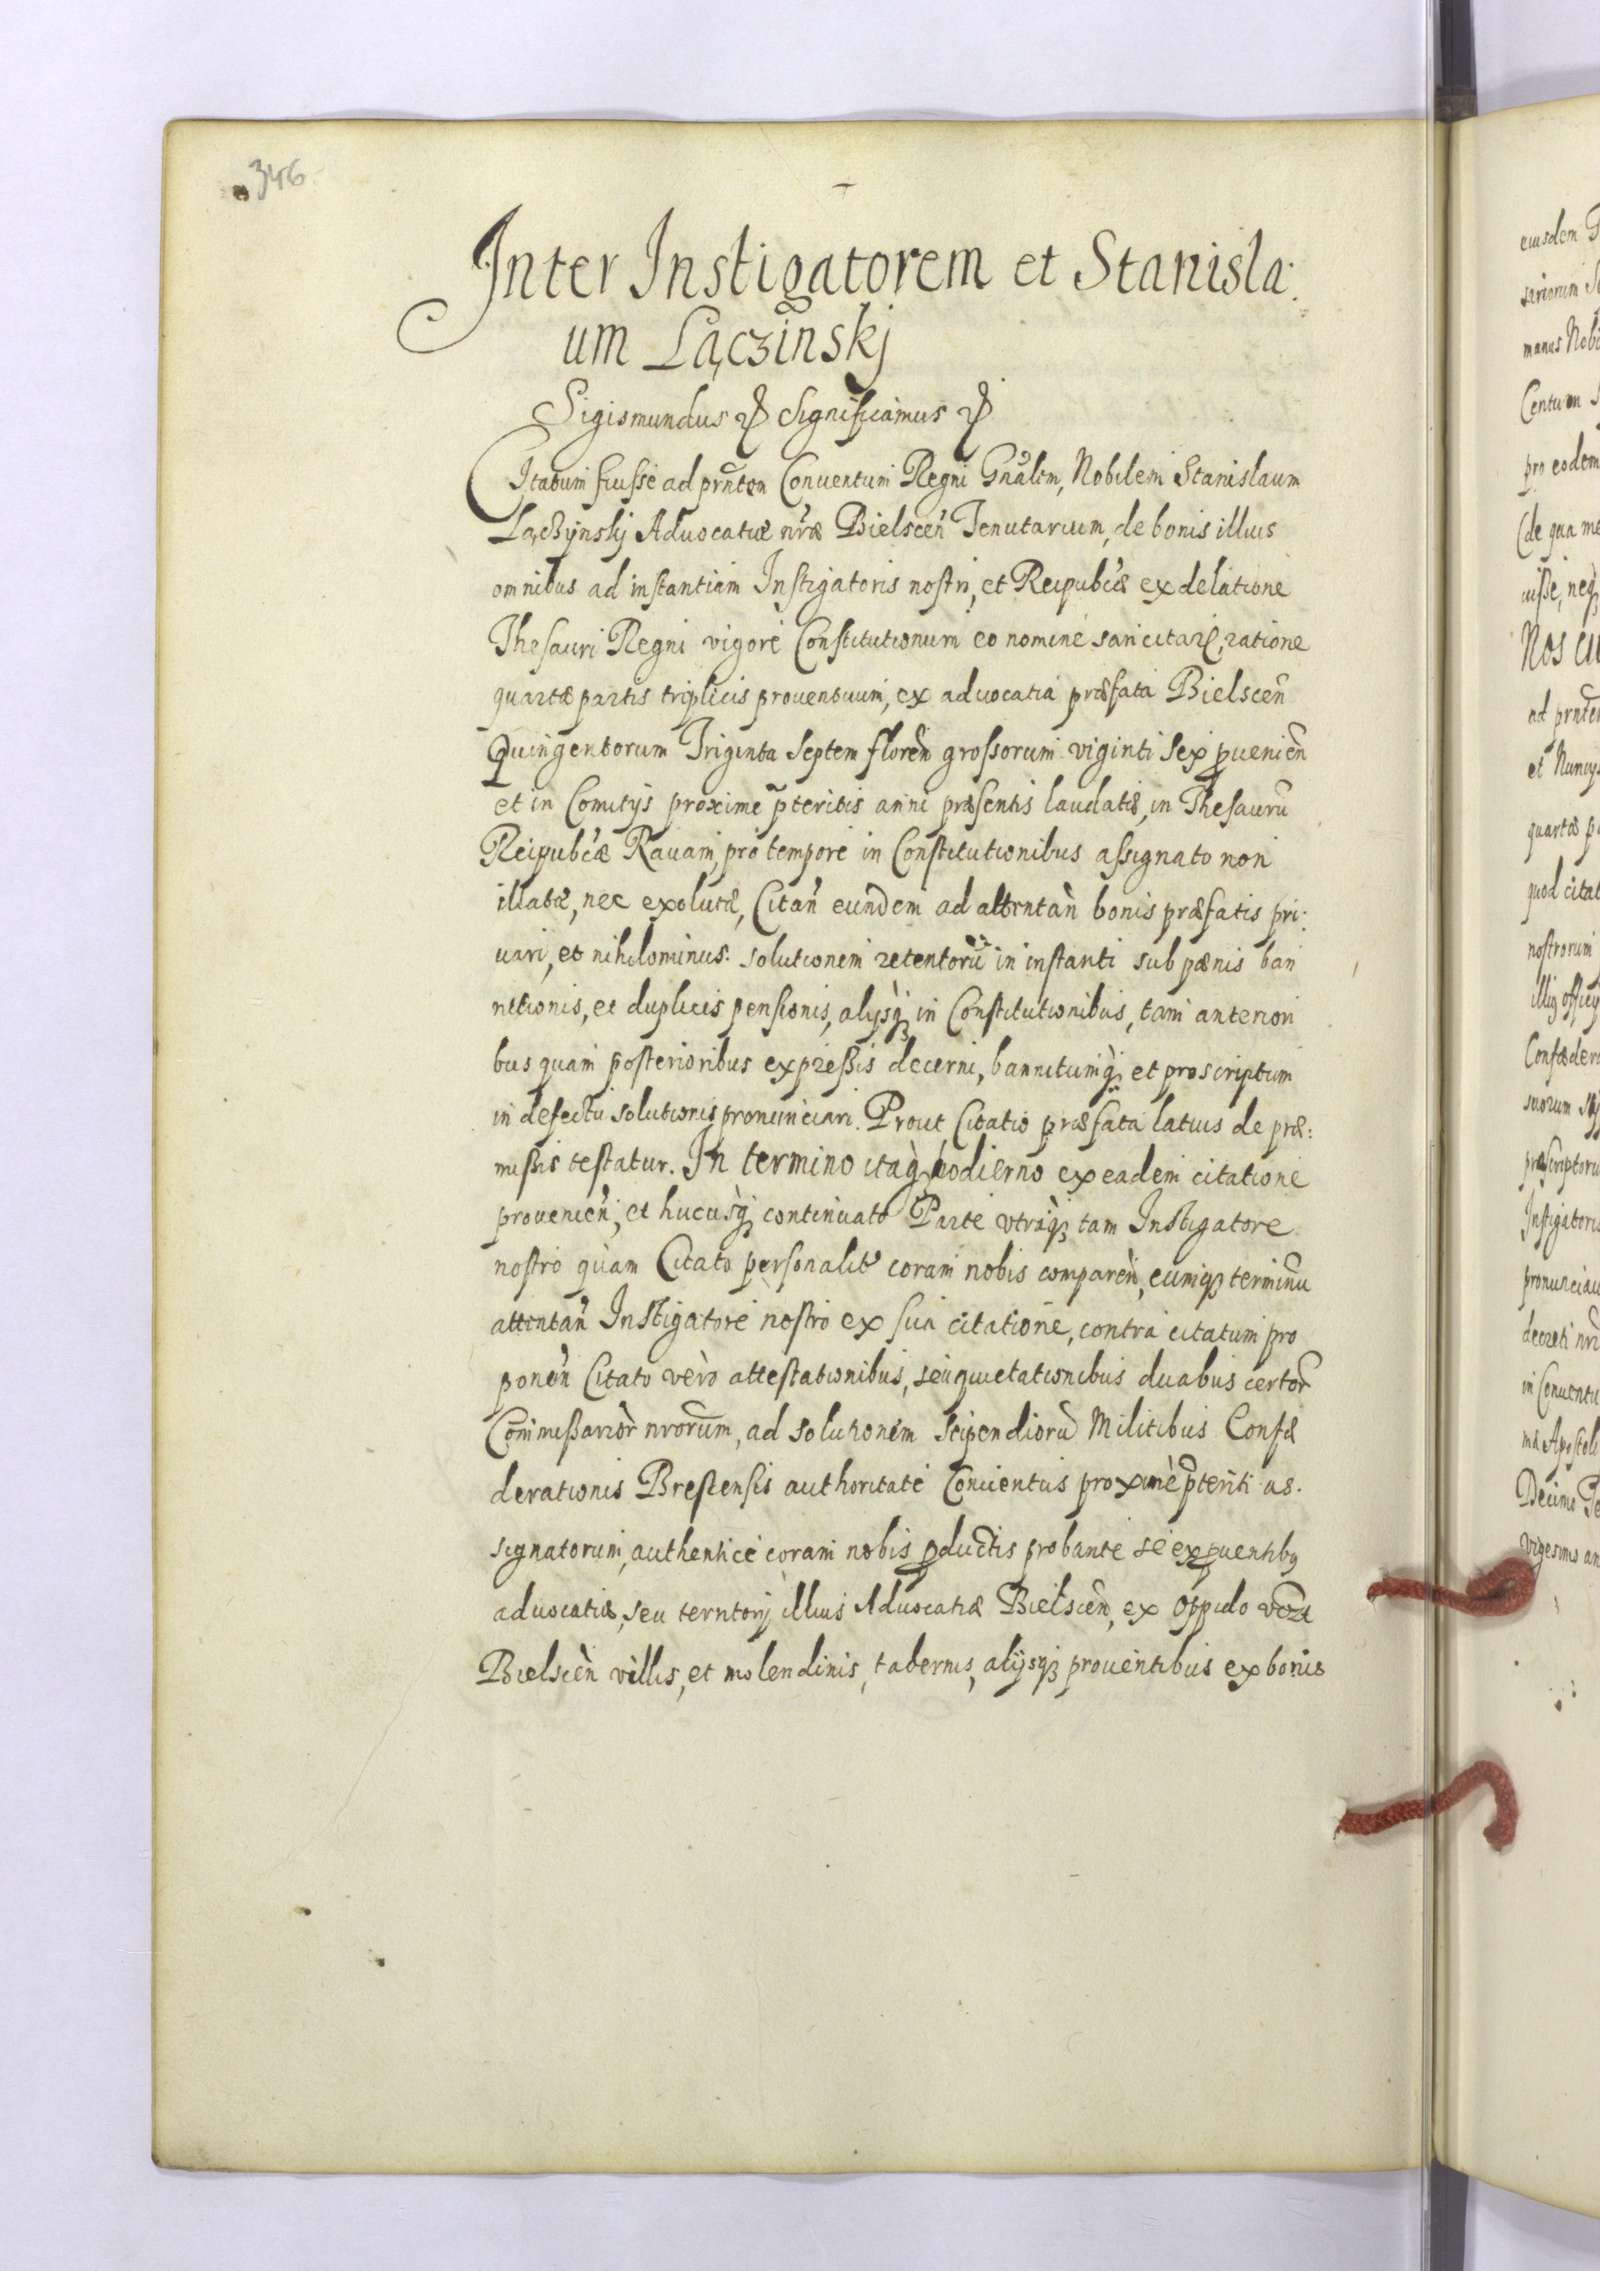 346
Inter Instigatorem et Stanisla:
um Łączinskj
Sigismundus Significamus
Citatum fuisse ad prn̄tem Conuentum Regni Gnălem, Nobilem Stanislaum
Łączynskij Aduocatiæ nr̄æ Bielscen̄ Tenutarium, de bonis illius
omnibus ad instantiam Instigatoris nostri, et Reipub̄cæ ex delatione
Thesauri Regni vigore Constitutionum eo nomine sancitar, ratione
quartæ partis triplicis prouentuum, ex aduocatia præfata Bielscen̄
Quingentorum Triginta Septem floren̄ grossorum viginti sex puenien̄
et in Comitijs proxime p̄teritis anni præsentis laudatæ, in Thesaurū
Reipub̄cæ Rauam, pro tempore in Constitutionibus assignato non
illatæ, nec exolutæ, Citan̄ eundem ad attentan̄ bonis præfatis pri:
uari, et nihilominus solutionem retentorū in instanti sub pænis ban
nitionis, et duplicis pensionis, alijsq; in Constitutionibus, tam anteriori
bus quam posterioribus expressis decerni, bannitumq; et proscriptum
in defectu solutionis pronunciari. Prout Citatio præfata latius de præ:
missis testatur. In termino itaq; hodierno ex eadem citatione
prouenien̄, et hucusq; continuato Parte vtraq; tam Instigatore
nostro quam Citato personalit̄ coram nobis comparen̄, eumq; terminū
attentan̄ Instigatore nostro ex sua citatione, contra citatum pro
ponen̄ Citato vero attestationibus, seu quietationibus duabus certor̄
Commissarior̄ nrorum, ad solutionem stipendiorū Militibus Confæ
derationis Brestensis authoritate Conuentus proxime p̄teriti as.
signatorum, authentice coram nobis pductis probante se ex puentibq
aduocatiæ, seu territorij illius Aduocatiæ Bielscen̄, ex Oppido
Bielscen̄ villis, et molendinis, tabernis, alijsq; prouentibus ex bonis
eiusdem
manus
Centum
pro eodem
(de qua
uisse, neq;
Nos
et Nuncijs
quartæ
quod
nostrorum
suorum
decreti
in Conuentu